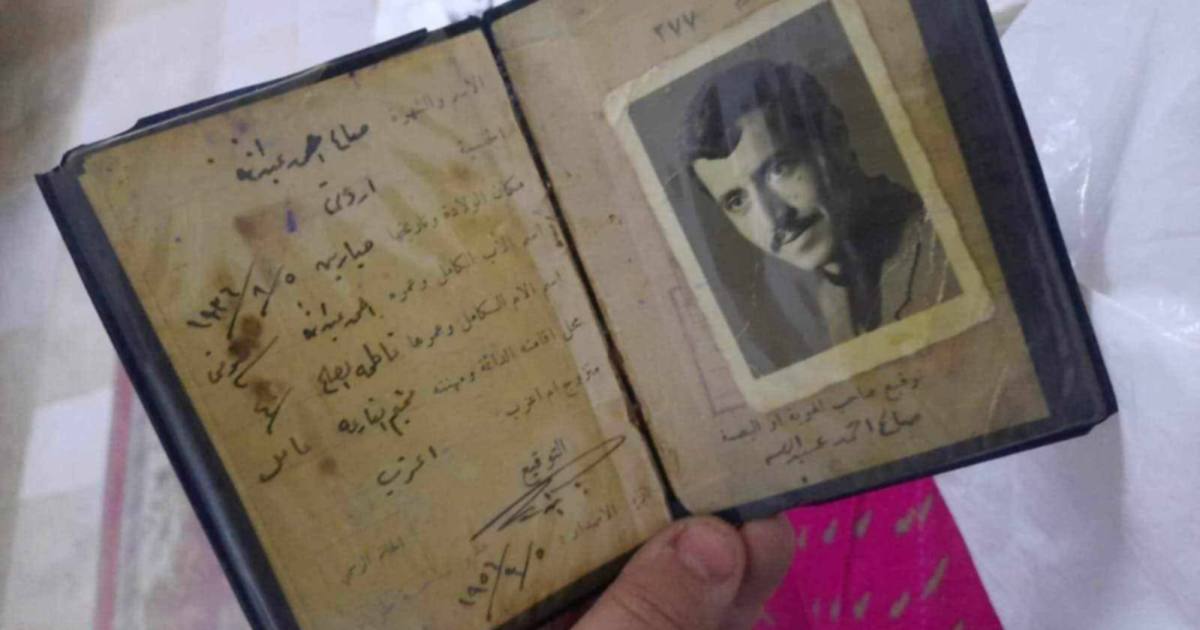 الاسم والشهرة صالح احمد عبدالله
الجنسية اردني
مكان الولادة وتاريخها صبارين ١٩٣٦/٩/٥
اسم الاب الكامل وعمره احمد عبدالله
اسم الام الكامل وعمرها فاطمه
محل اقامته الدائمة ومهنته مخيم عامل
متزوج ام اعزب اعزب
التوقيع
١٩٥٦/٩/٥
٢٧٧
توقيع صاحب الهوية او البصمة
صالح احمد عبدالله